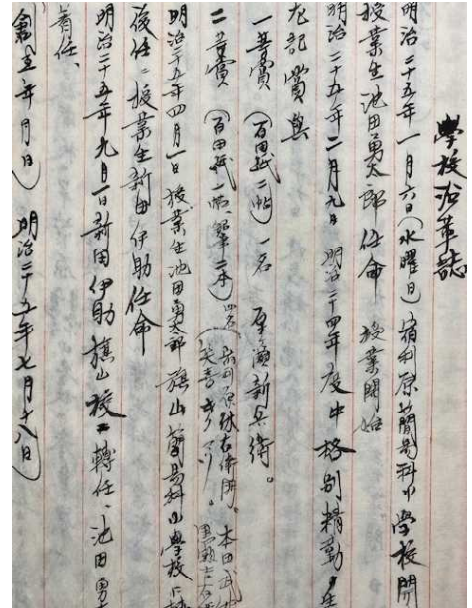 學校沿革誌
明治二十五年一月六日(水曜日)宿利原簡易科小學校開
授業生池田勇太郎任命 授業開始
明治二十五年二月九日 明治二十四年度中格別精勤ノ生
左記賞與
一等賞(百田紙二帖)一名 原瀬新兵衛。
二等賞(百田紙一帖、筆二本)四名
本田
明治二十五年四月一日授業生池田勇太郎旗山簡易科小學校ニ轉
後任ニ授業生新田伊助任命
明治二十五年九月一日新田伊助旗山校ニ轉任、池田勇太
着任、
創立年月日) 明治二十五年七月十八日)